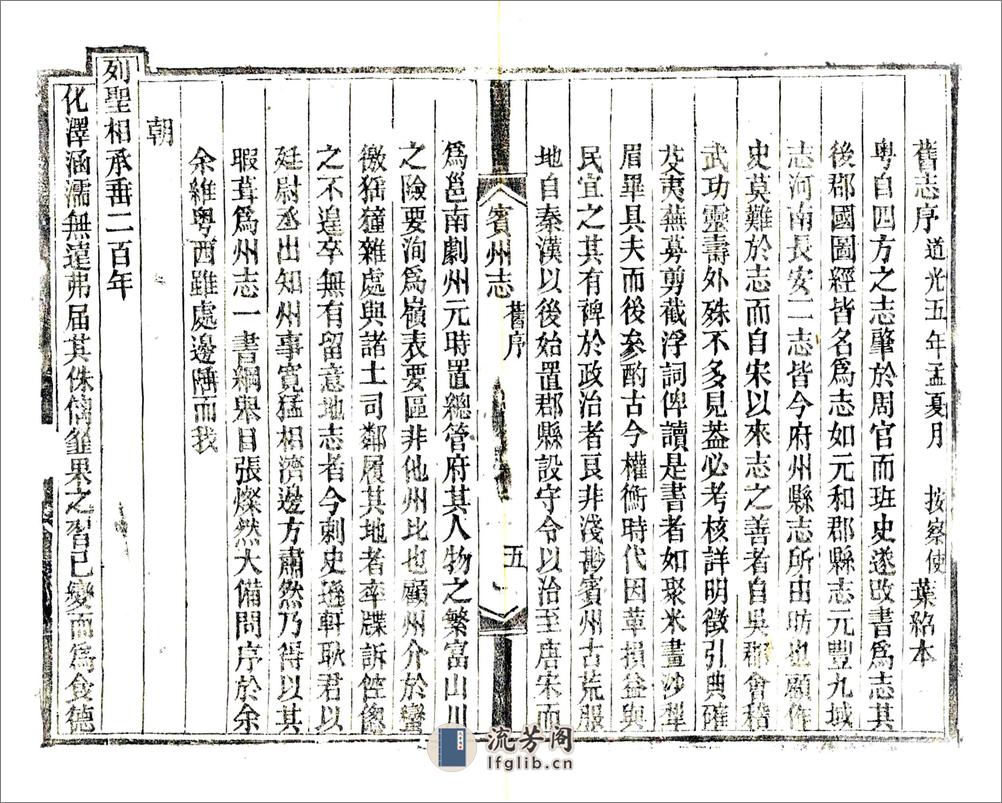 舊志序 道光五年孟夏月 按察使 葉紹本
粵自四方之志肇於周官而班史遂改書爲志其
後郡國圖經皆名爲志如元和郡縣志元豐九域
志河南長安二志皆今府州縣志所由昉也顧作
史莫難於志而自宋以來志之善者自吳郡會稽
武功靈壽外殊不多見葢必考核詳明徵引典確
芟夷蕪穢剪截浮詞俾讀是書者如聚米畫沙犁
眉畢具夫而後參酌古今權衡時代因革損益與
民宜之其有裨於政治者良非淺尠賓州古荒服
地自秦漢以後始置郡縣設守令以治至唐宋而
賓州志 舊序 五
爲邕南劇州元時置總管府其人物之繁富山川
之險要洵爲嶺表要區非他州比也顧州介於蠻
徼猺獞雜處與諸土司鄰履其地者率牒訴倥傯
之不遑卒無有留意地志者今刺史遜軒耿君以
廷尉丞出知州事寛猛相濟邊方肅然乃得以其
暇葺爲州志一書綱舉目張燦然大備問序於余
余維粵西雖處邊陲而我
朝
列聖相承垂二百年
化澤涵濡無遠弗届其侏㒧雛果之習已變而爲食德
流芳阁
lfglib.cn